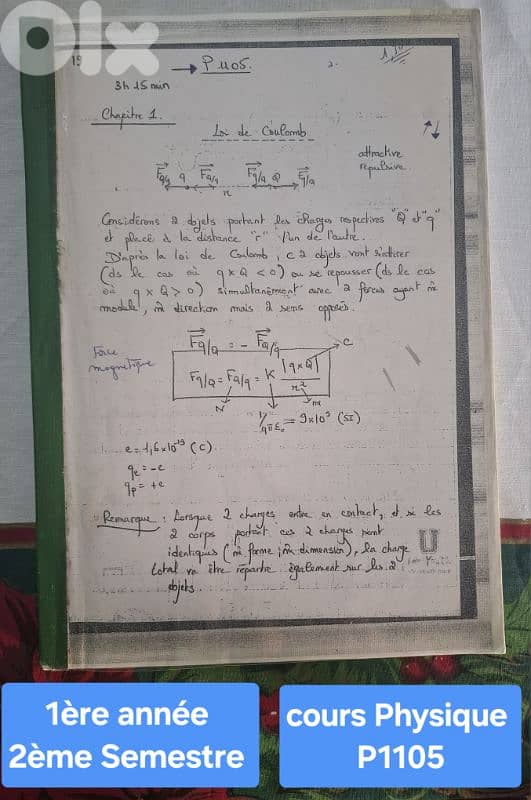 OLX
→ P1105.
3h 15 min
Chapitre 1.
Loi de Coulomb
attractive
répulsive
q Q
r
Considérons 2 objets portant les charges respectives "Q" et "q"
et placé à la distance "r" l'un de l'autre.
D'après la loi de Coulomb, c 2 objets vont s'attirer
(ds le cas où q x Q < 0) ou se repousser (ds le cas
où q x Q > 0) simultanément avec 2 forces ayant m̂
module, m̂ direction mais 2 sens opposés.
F q/Q = - F Q/q
C
Force
magnetique
F q/Q = F Q/q = K |q x Q| / r²
N m
1/4πε₀ = 9x10⁹ (SI)
e = 1,6x10⁻¹⁹ (C)
qe = -e
qp = +e
Remarque : Lorsque 2 charges entre en contact, et si les
2 corps portant ces 2 charges sont
identiques (m̂ forme ; m̂ dimension), la charge
total va être répartie également sur les 2
objets.
U
1ère année
2ème Semestre
cours Physique
P1105